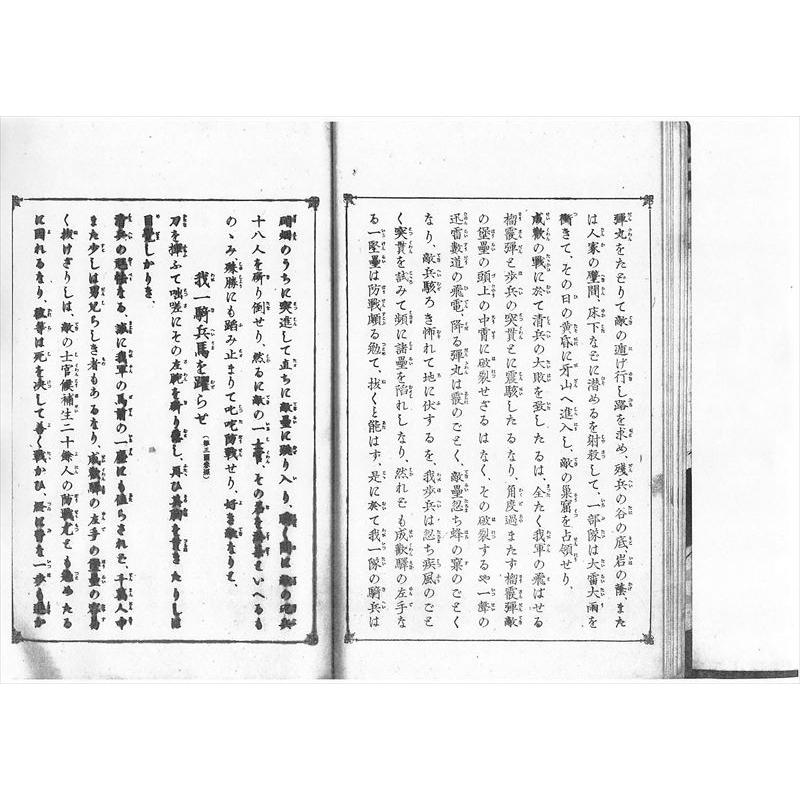 彈丸をたどりて敵の遁け行し路を求め、殘兵の谷の底、岩の蔭、また
は人家の壁間、床下などに潜めるを射殺して、一部隊は大雷大雨を
衝きて、その日の黄昏に牙山へ進入し、敵の巣窟を占領せり、
成歡の戰に於て清兵の大敗を致したるは、全たく我軍の飛ばせる
榴霰彈と歩兵の突貫とに震駭したるなり、角度過またす榴霰彈敵
の堡壘の頭上の中霄に破裂せざるはなく、その破裂するや一聲の
迅雷數道の飛電、降る彈丸は霰のごとく、敵壘忽ち蜂の窠のごとく
なり、敵兵駭ろき怖れて地に伏するを、我歩兵は忽ち疾風のごと
く突貫を試みて頻に諸壘を陷れしなり、然れども成歡驛の左手な
る一堅壘は防戰頗る勉て、拔くと能はす、是に於て我一隊の騎兵は
硝烟のうちに突進して立ちに敵壘に躍り入り、瞬く間に敵の砲兵
十八人を斬り倒せり、然るに敵の一士官、その名を といへるも
のゝみ殊勝にも踏み止まりて叱咤防戰せり、好き敵なりと、
我一騎兵馬を躍らせ（第三圖參照）
刀を揮ふて咄嗟にその左腕を斬り 、再ひ其胸を貫きたりしは
目覺しかりき、
清兵の なる、誠に我軍の馬前の一塵にも値らされど、千萬人中
また少しは男兒らしき者もあるなり、成歡驛の左手の堡壘の容易
く拔けざりしは、敵の士官候補生二十餘人の防戰尤とも勉めたる
に因れるなり、彼等は死を決して善く戰かひ、 一歩も退か